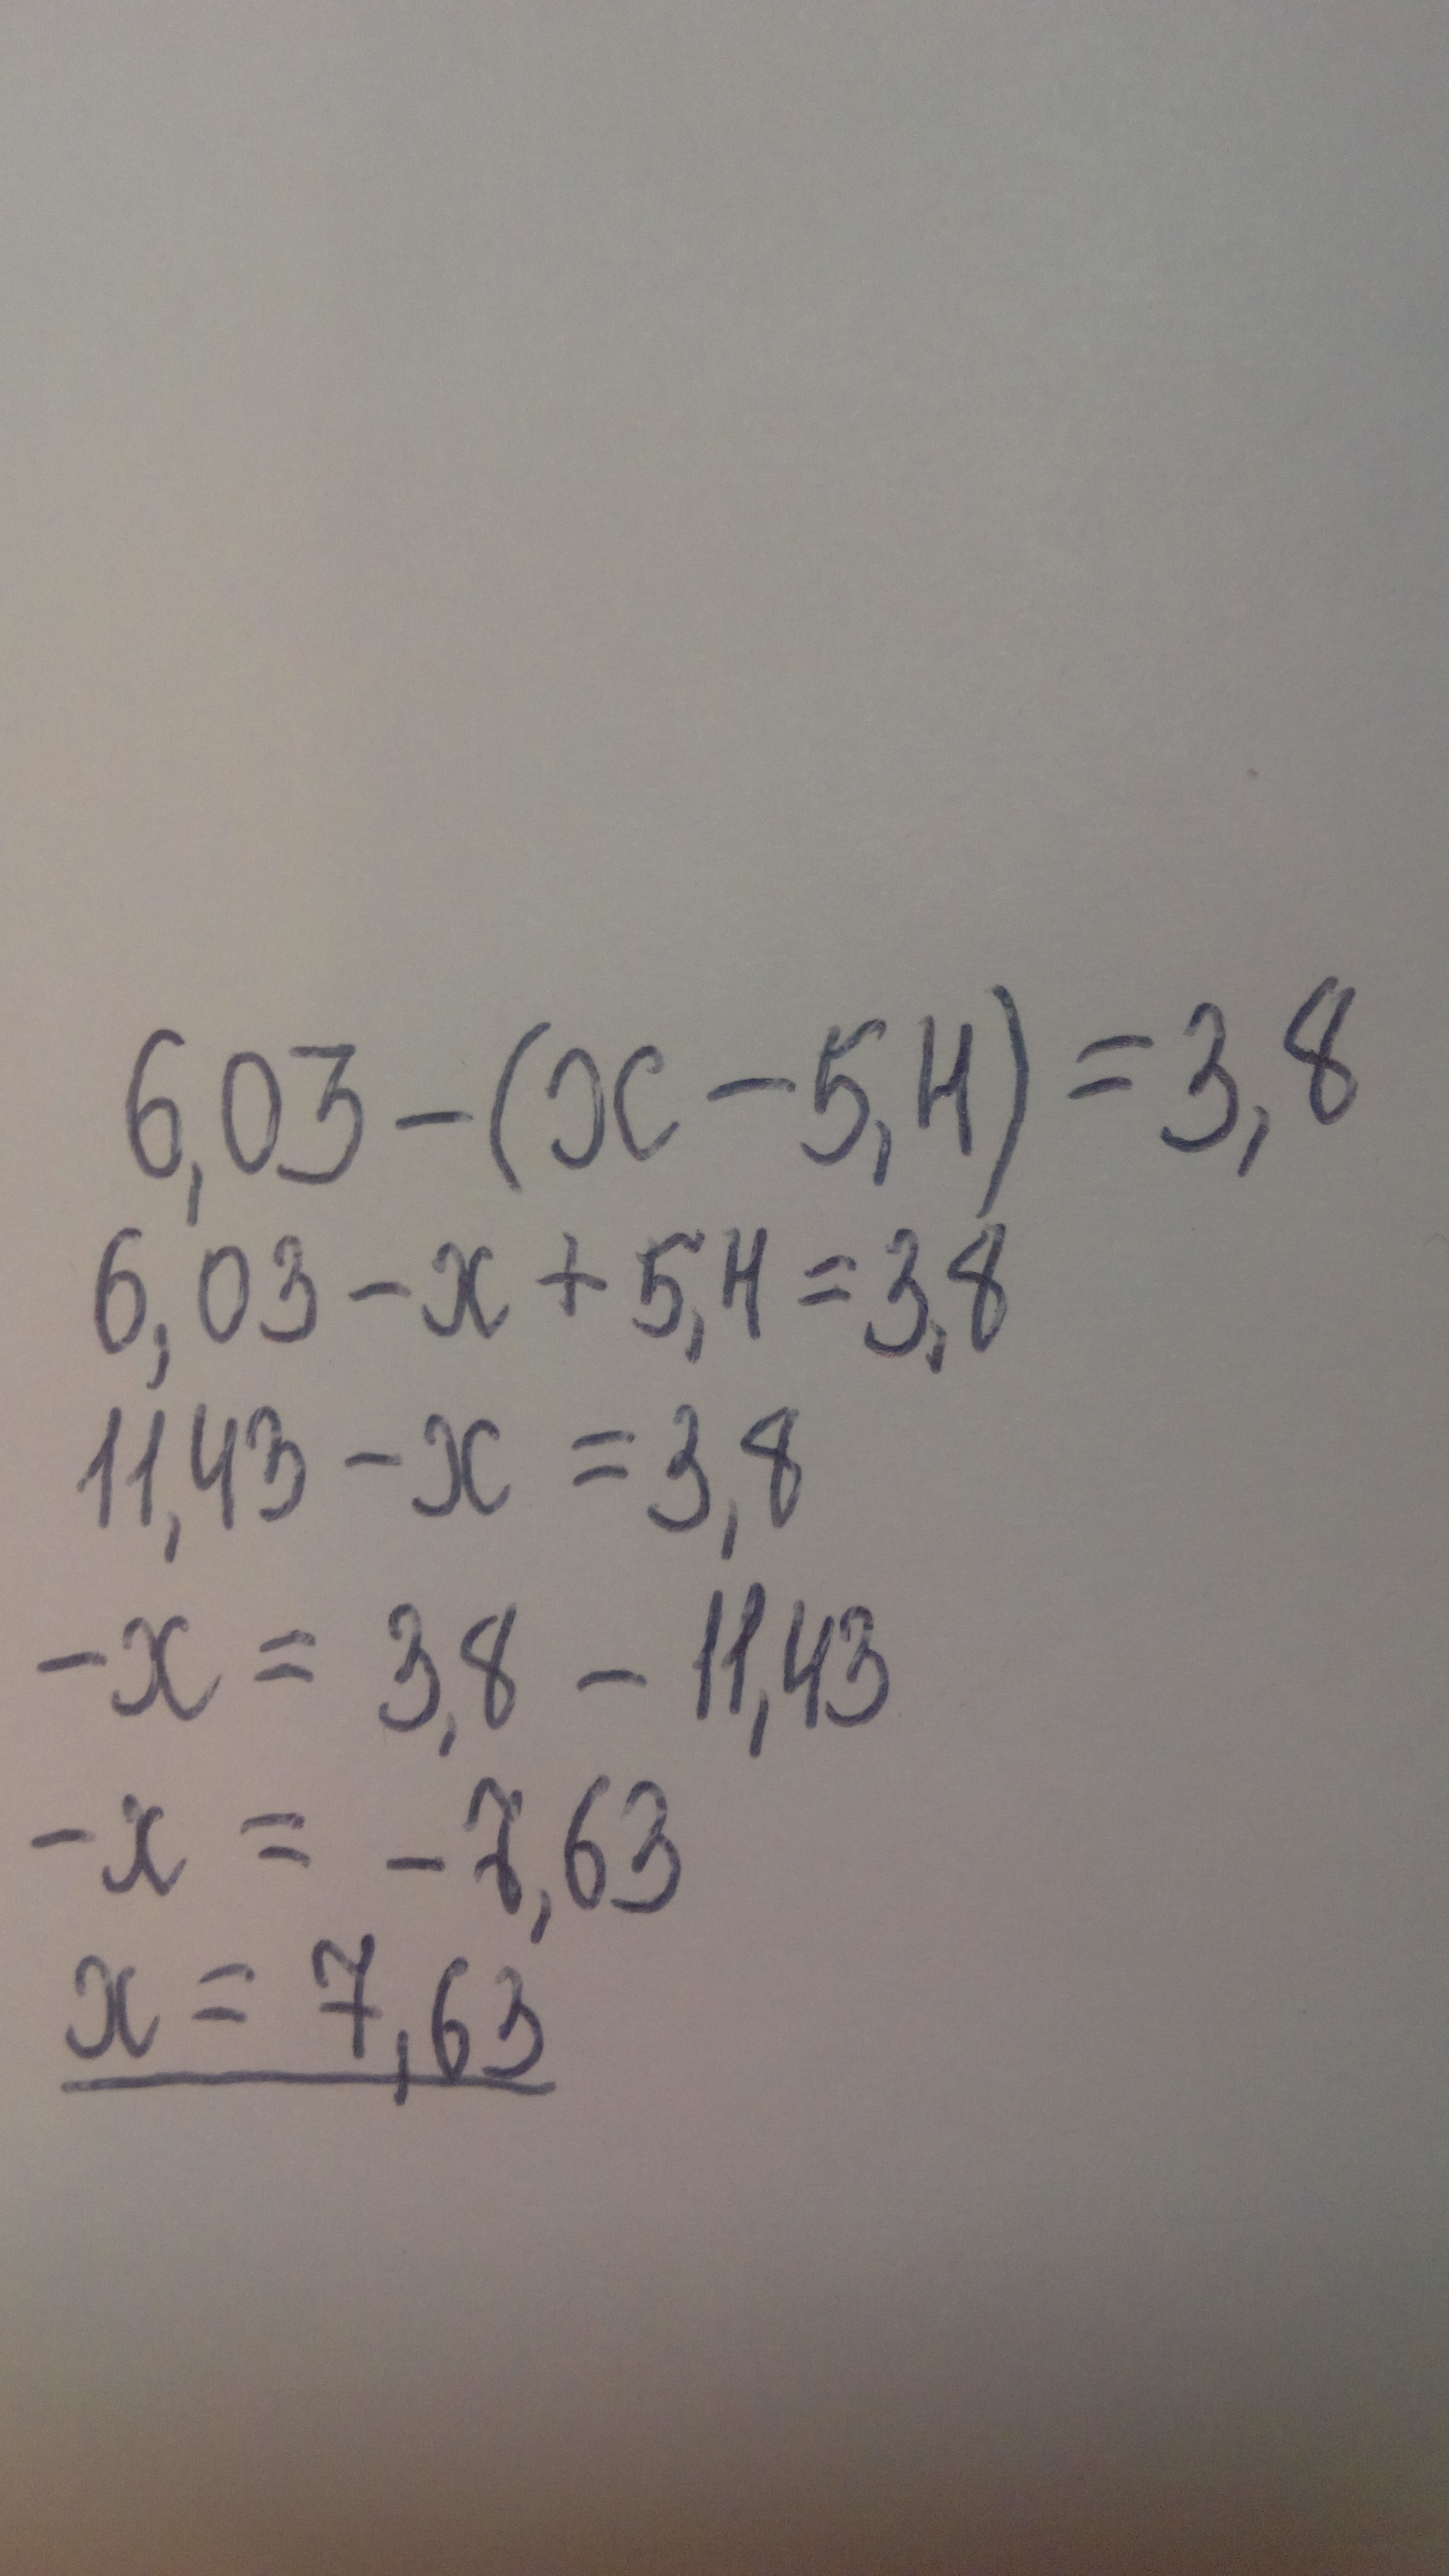 6,03-(x-5,4)=3,8
6,03-x+5,4=3,8
11,43-x=3,8
-x=3,8-11,43
-x=-7,63
x=7,63